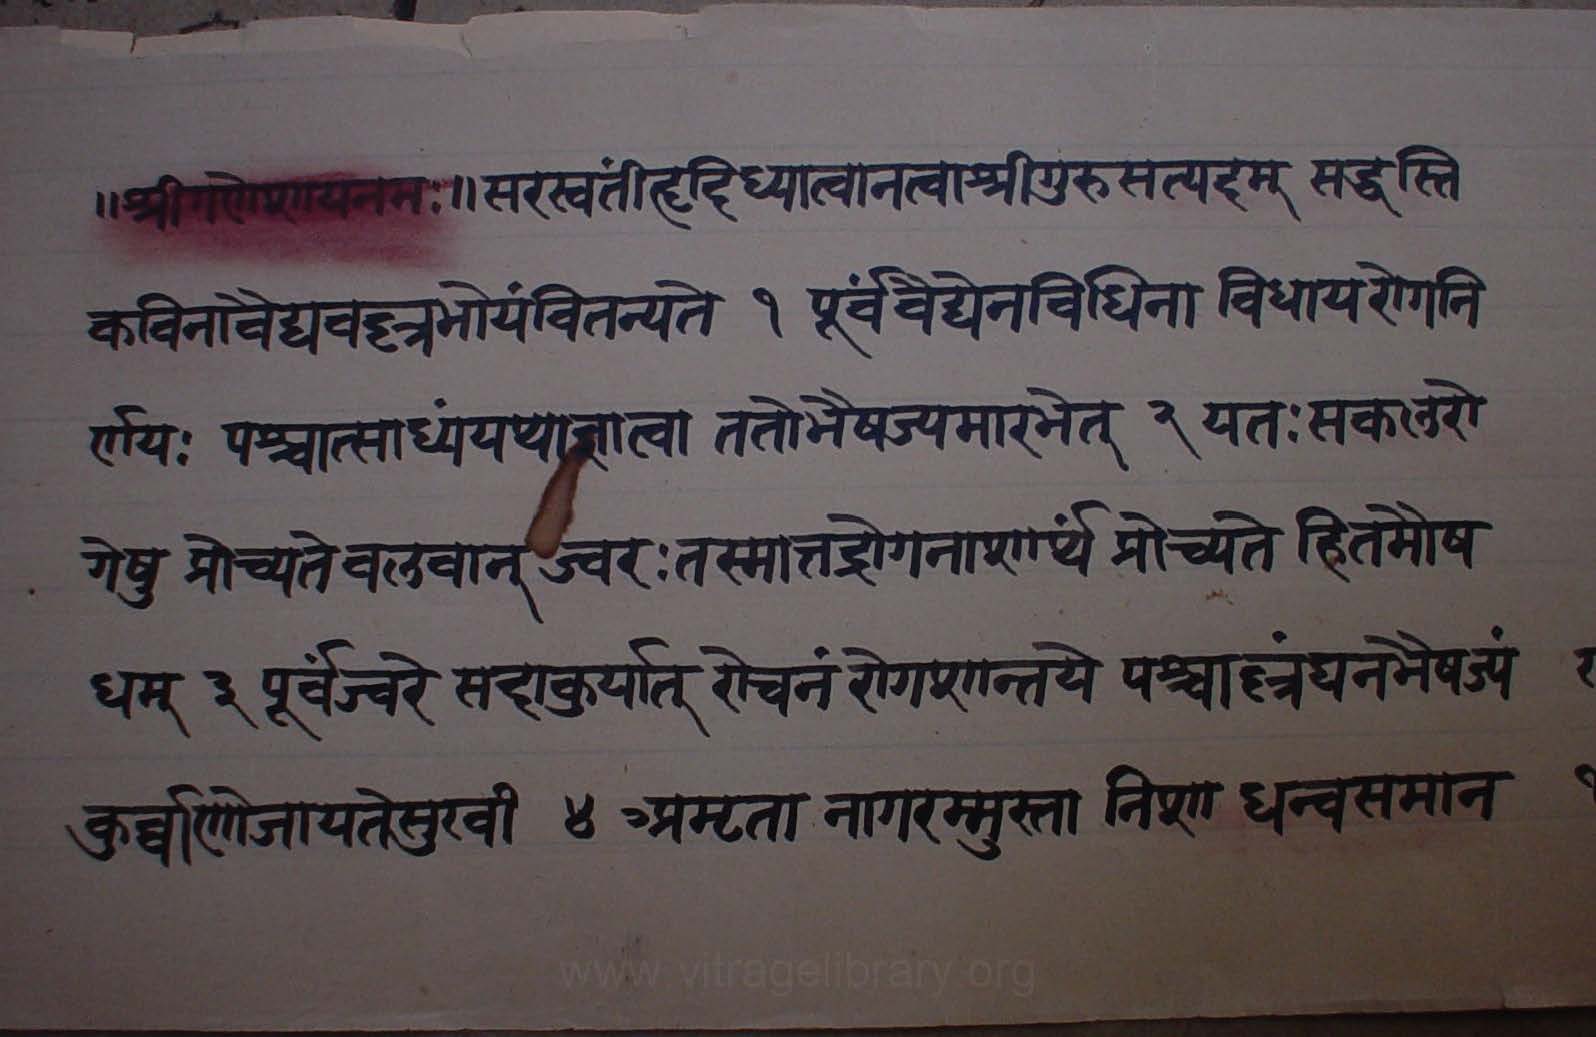 ॥श्रीगणेशायनमः॥सरस्वतींहृदिध्यात्वानत्वाश्रीगुरुसत्पदम् सद्धस्ति
कविनावैद्यवल्लभोयंवितन्यते १ पूर्वंवैद्येनविधिना विधायरोगनि
र्णयः पश्चात्साध्यंयप्याज्ञात्वा ततोभैषज्यमारभेत् २ यतःसकलरो
गेषु प्रोच्यतेवलवान् ज्वरःतस्मात्तद्रोगनाशार्थं प्रोच्यते हितमौष
धम् ३ पूर्वंज्वरे सदाकुर्यात् रोचनं रोगशान्तये पश्चाद्दन्त्रंघनभैषज्यं
कुर्व्वाणोजायतेसुखी ४ अमृता नागरम्मुस्ता निशा धन्वसमान
www.vitragelibrary.org